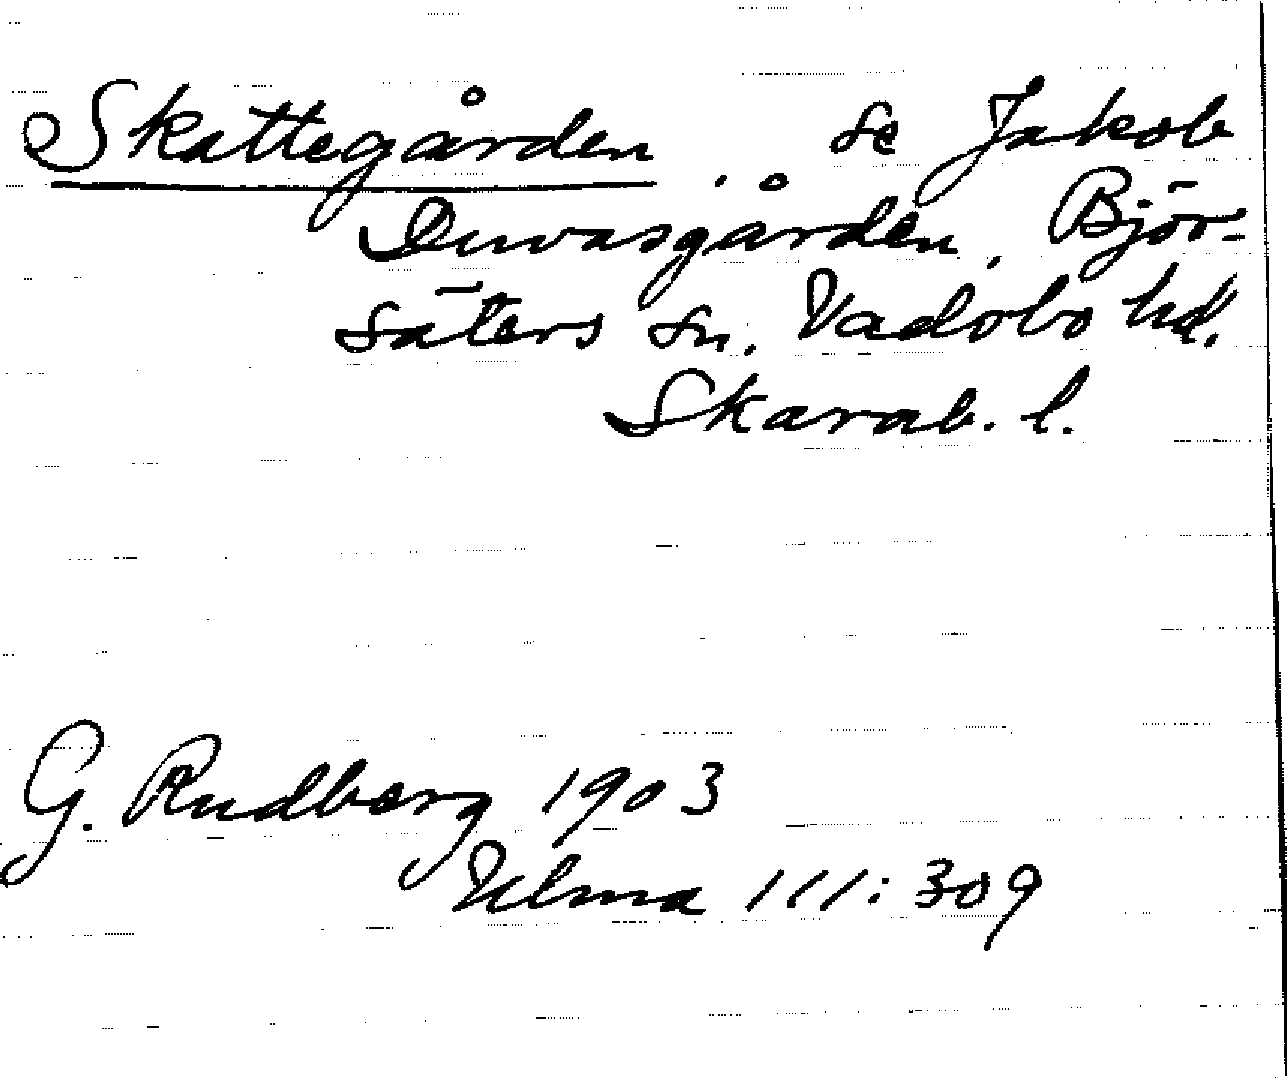 Skattegården, se Jakob
Duvasgården, Björ-
säters sn. Vadsbo hd.
Skarab. l.
G. Rudberg 1903
Ulma 111:309